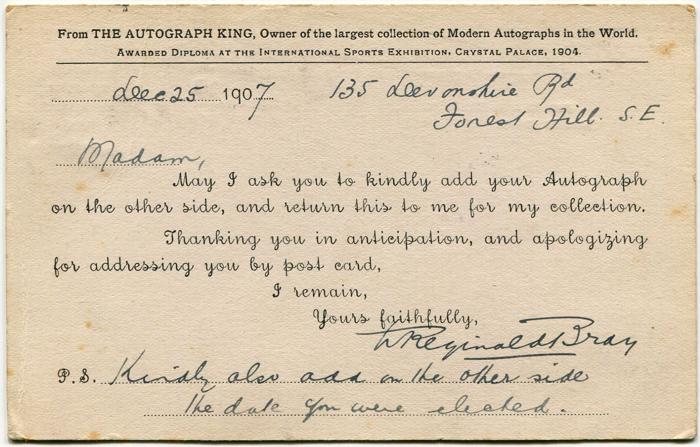 From THE AUTOGRAPH KING, Owner of the largest collection of Modern Autographs in the World.
AWARDED DIPLOMA AT THE INTERNATIONAL SPORTS EXHIBITION, CRYSTAL PALACE, 1904.
Dec 25 1907 135 Devonshire Rd
Forest Hill. S.E.
Madam,
May I ask you to kindly add your Autograph
on the other side, and return this to me for my collection.
Thanking you in anticipation, and apologizing
for addressing you by post card,
I remain,
Yours faithfully,
W Reginald Bray
P.S. Kindly also add on the other side
the date you were elected.